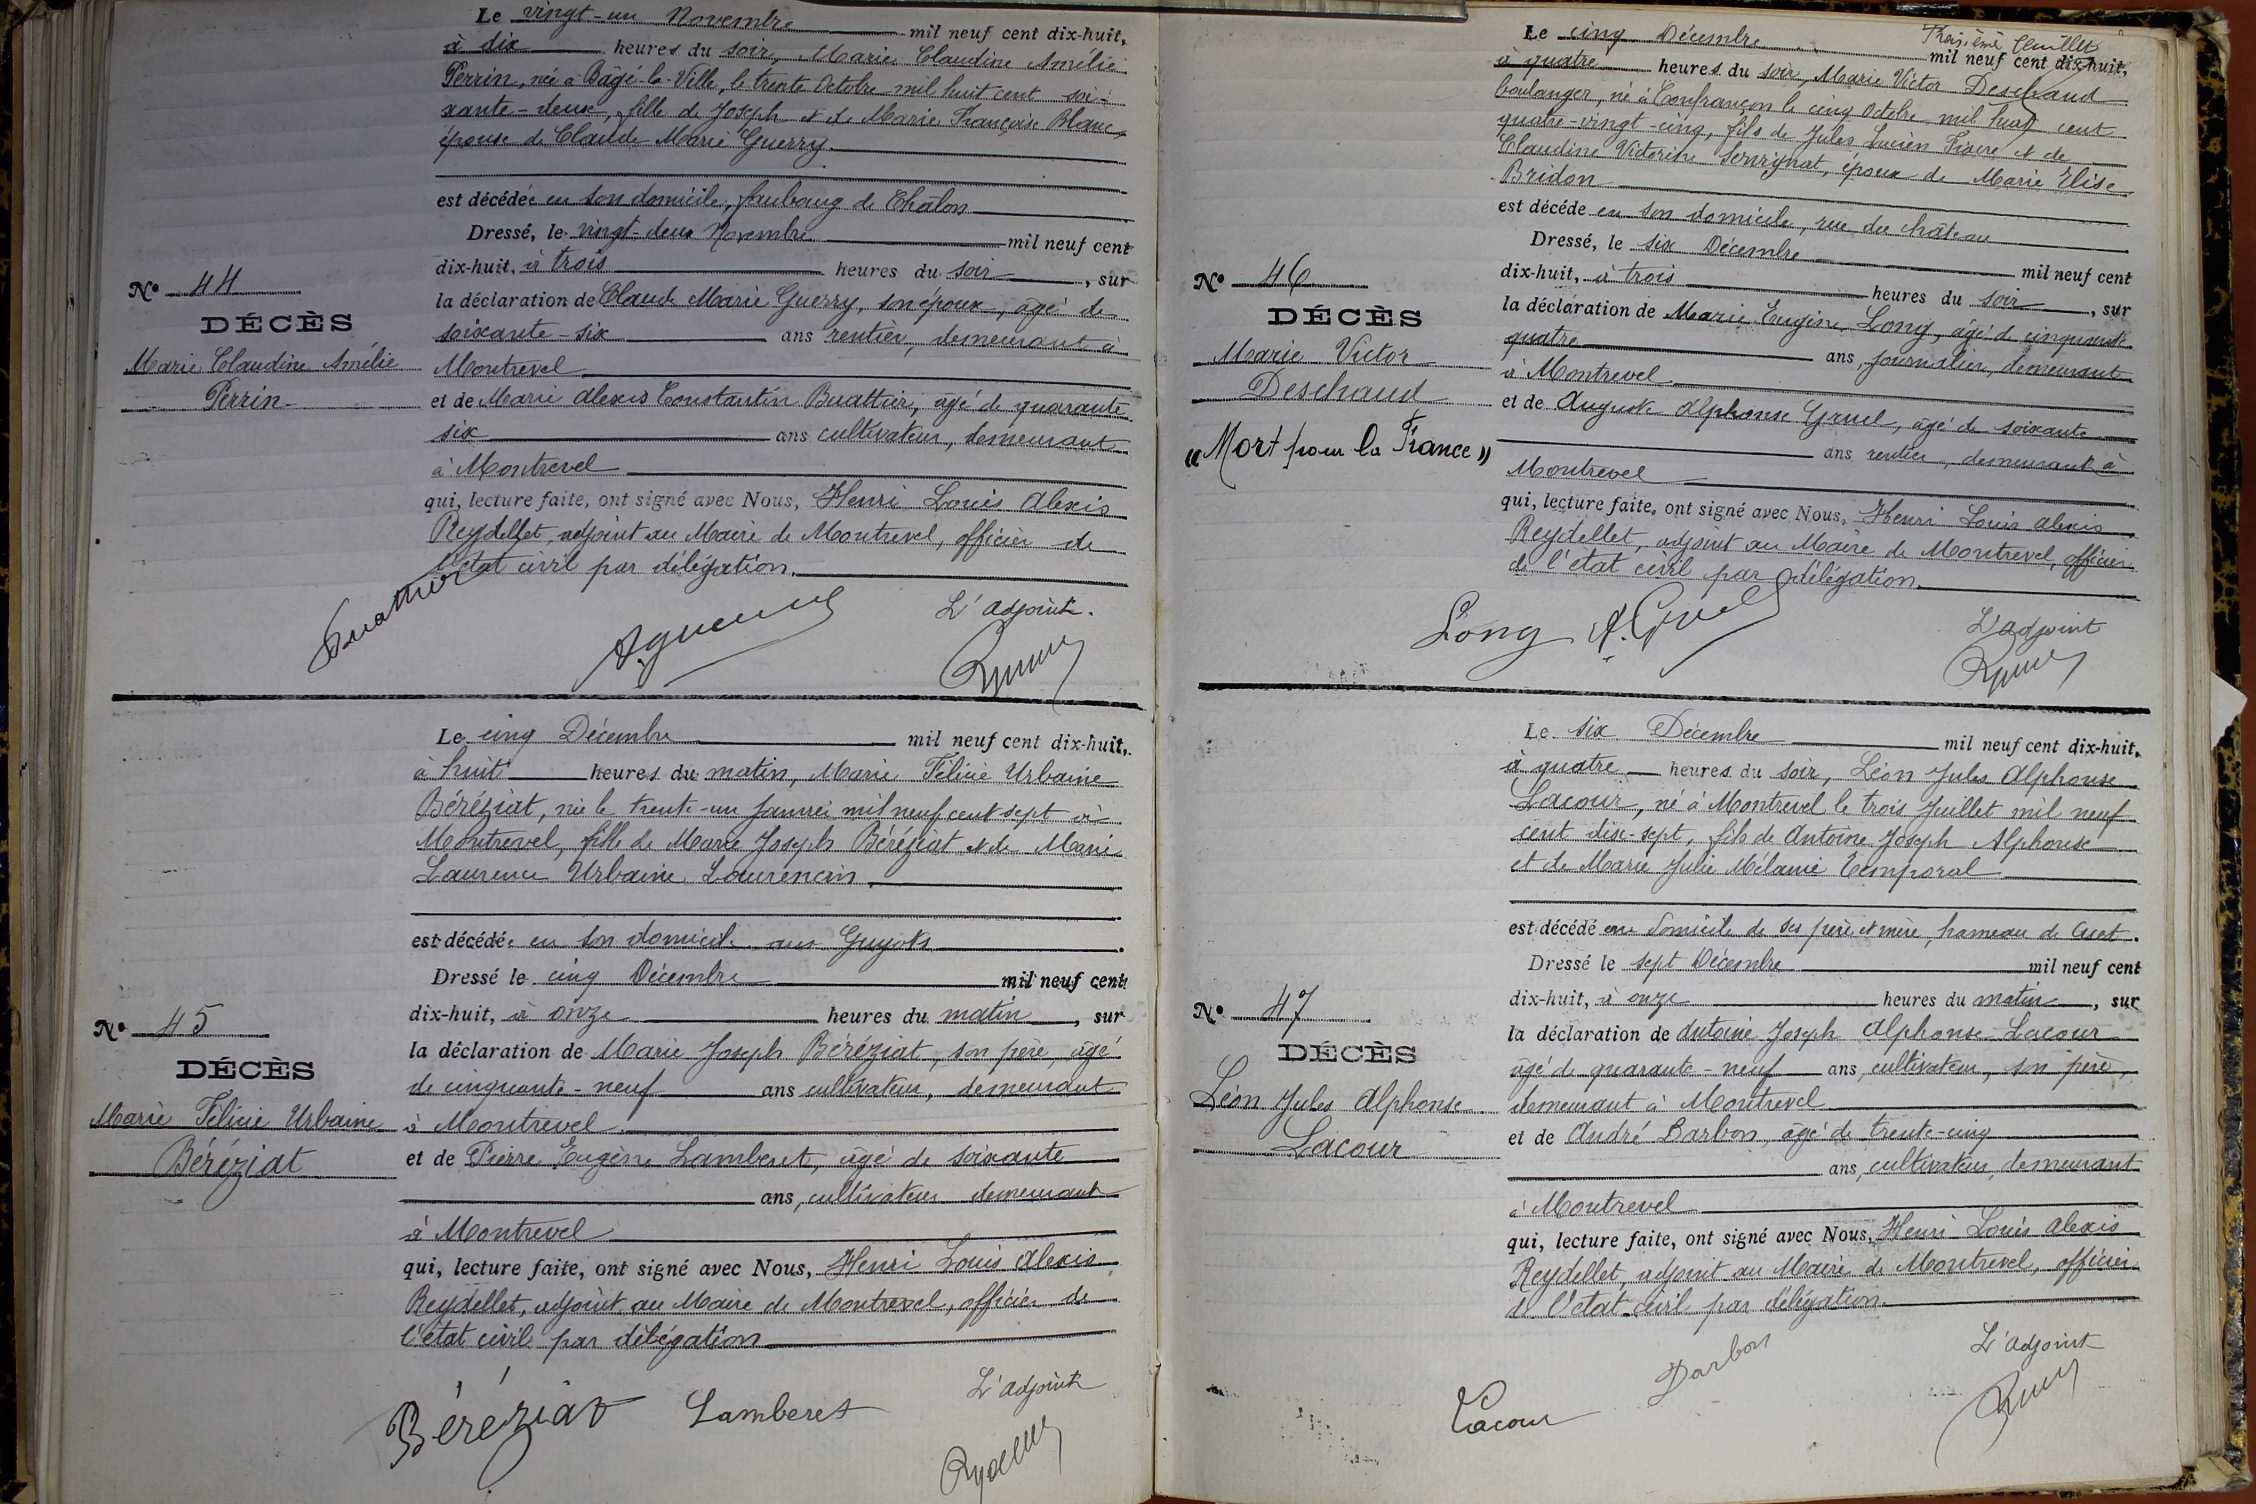 Le vingt-un Novembre mil neuf cent dix-huit,
à dix heures du soir, Marie Claudine Amélie
Perrin, née à Bâgé-la-Ville, le trente Octobre mil huit cent soi-
xante-deux, fille de Joseph et de Marie Françoise Blanc,
épouse de Claude Marie Guerry.
est décédée en son domicile, faubourg de Châlon
Dressé, le vingt-deux Novembre mil neuf cent
dix-huit, à trois heures du soir, sur
la déclaration de Claude Marie Guerry, son époux, âgé de
soixante-six ans rentier, demeurant à
Montrevel
et de Marie Alexis Constantin Buattier, âgé de quarante
six ans cultivateur, demeurant
à Montrevel
qui, lecture faite, ont signé avec Nous, Henri Louis Alexis
Reydellet, adjoint au Maire de Montrevel, officier de
l'état civil par délégation.
N° 44
DÉCÈS
Marie Claudine Amélie
Perrin
L'adjoint.
Buattier
Le cinq Décembre mil neuf cent dix-huit,
à huit heures du matin, Marie Félicie Urbaine
Béréziat, née le trente-un Janvier mil neuf cent sept à
Montrevel, fille de Marie Joseph Béréziat et de Marie
Laurence Urbaine Laurencin.
est décédée en son domicile aux Guyots
Dressé le cinq Décembre mil neuf cent
dix-huit, à onze heures du matin, sur
la déclaration de Marie Joseph Béréziat, son père, âgé
de cinquante-neuf ans cultivateur, demeurant
à Montrevel
et de Pierre Eugène Lamberet, âgé de soixante
ans, cultivateur demeurant
à Montrevel
qui, lecture faite, ont signé avec Nous, Henri Louis Alexis
Reydellet, adjoint au Maire de Montrevel, officier de
l'état civil par délégation
N° 45
DÉCÈS
Marie Félicie Urbaine
Béréziat
L'adjoint
Béréziat Lamberet
Troisième feuillet
Le cinq Décembre mil neuf cent dix-huit,
à quatre heures du soir, Marie Victor Deschaud
boulanger, né à Confrançon le cinq Octobre mil huit cent
quatre-vingt-cinq, fils de Jules Lucien et de
Claudine Victorine, époux de Marie Elise
Bridon
est décédé en son domicile, rue du château
Dressé, le six Décembre mil neuf cent
dix-huit, à trois heures du soir, sur
la déclaration de Marie Eugène Long, âgé de cinquante
quatre ans, journalier, demeurant
à Montrevel
et de Auguste Alphonse Gruel, âgé de soixante
ans rentier, demeurant à
Montrevel
qui, lecture faite, ont signé avec Nous, Henri Louis Alexis
Reydellet, adjoint au Maire de Montrevel, officier
de l'état civil par délégation.
N° 46
DÉCÈS
Marie Victor
Deschaud
"Mort pour la France"
Long A. Gruel
L'adjoint
Le six Décembre mil neuf cent dix-huit,
à quatre heures du soir, Léon Jules Alphonse
Lacour, né à Montrevel le trois Juillet mil neuf
cent dix-sept, fils de Antoine Joseph Alphonse
et de Marie Julie Mélanie Temporal
est décédé au domicile de ses père et mère, hameau de Cuet.
Dressé le sept Décembre mil neuf cent
dix-huit, à onze heures du matin, sur
la déclaration de Antoine Joseph Alphonse Lacour
âgé de quarante-neuf ans, cultivateur, son père,
demeurant à Montrevel
et de André Barbon, âgé de trente-cinq
ans, cultivateur, demeurant
à Montrevel
qui, lecture faite, ont signé avec Nous, Henri Louis Alexis
Reydellet, adjoint au Maire de Montrevel, officier
de l'état civil par délégation
N° 47
DÉCÈS
Léon Jules Alphonse
Lacour
L'adjoint
Lacour